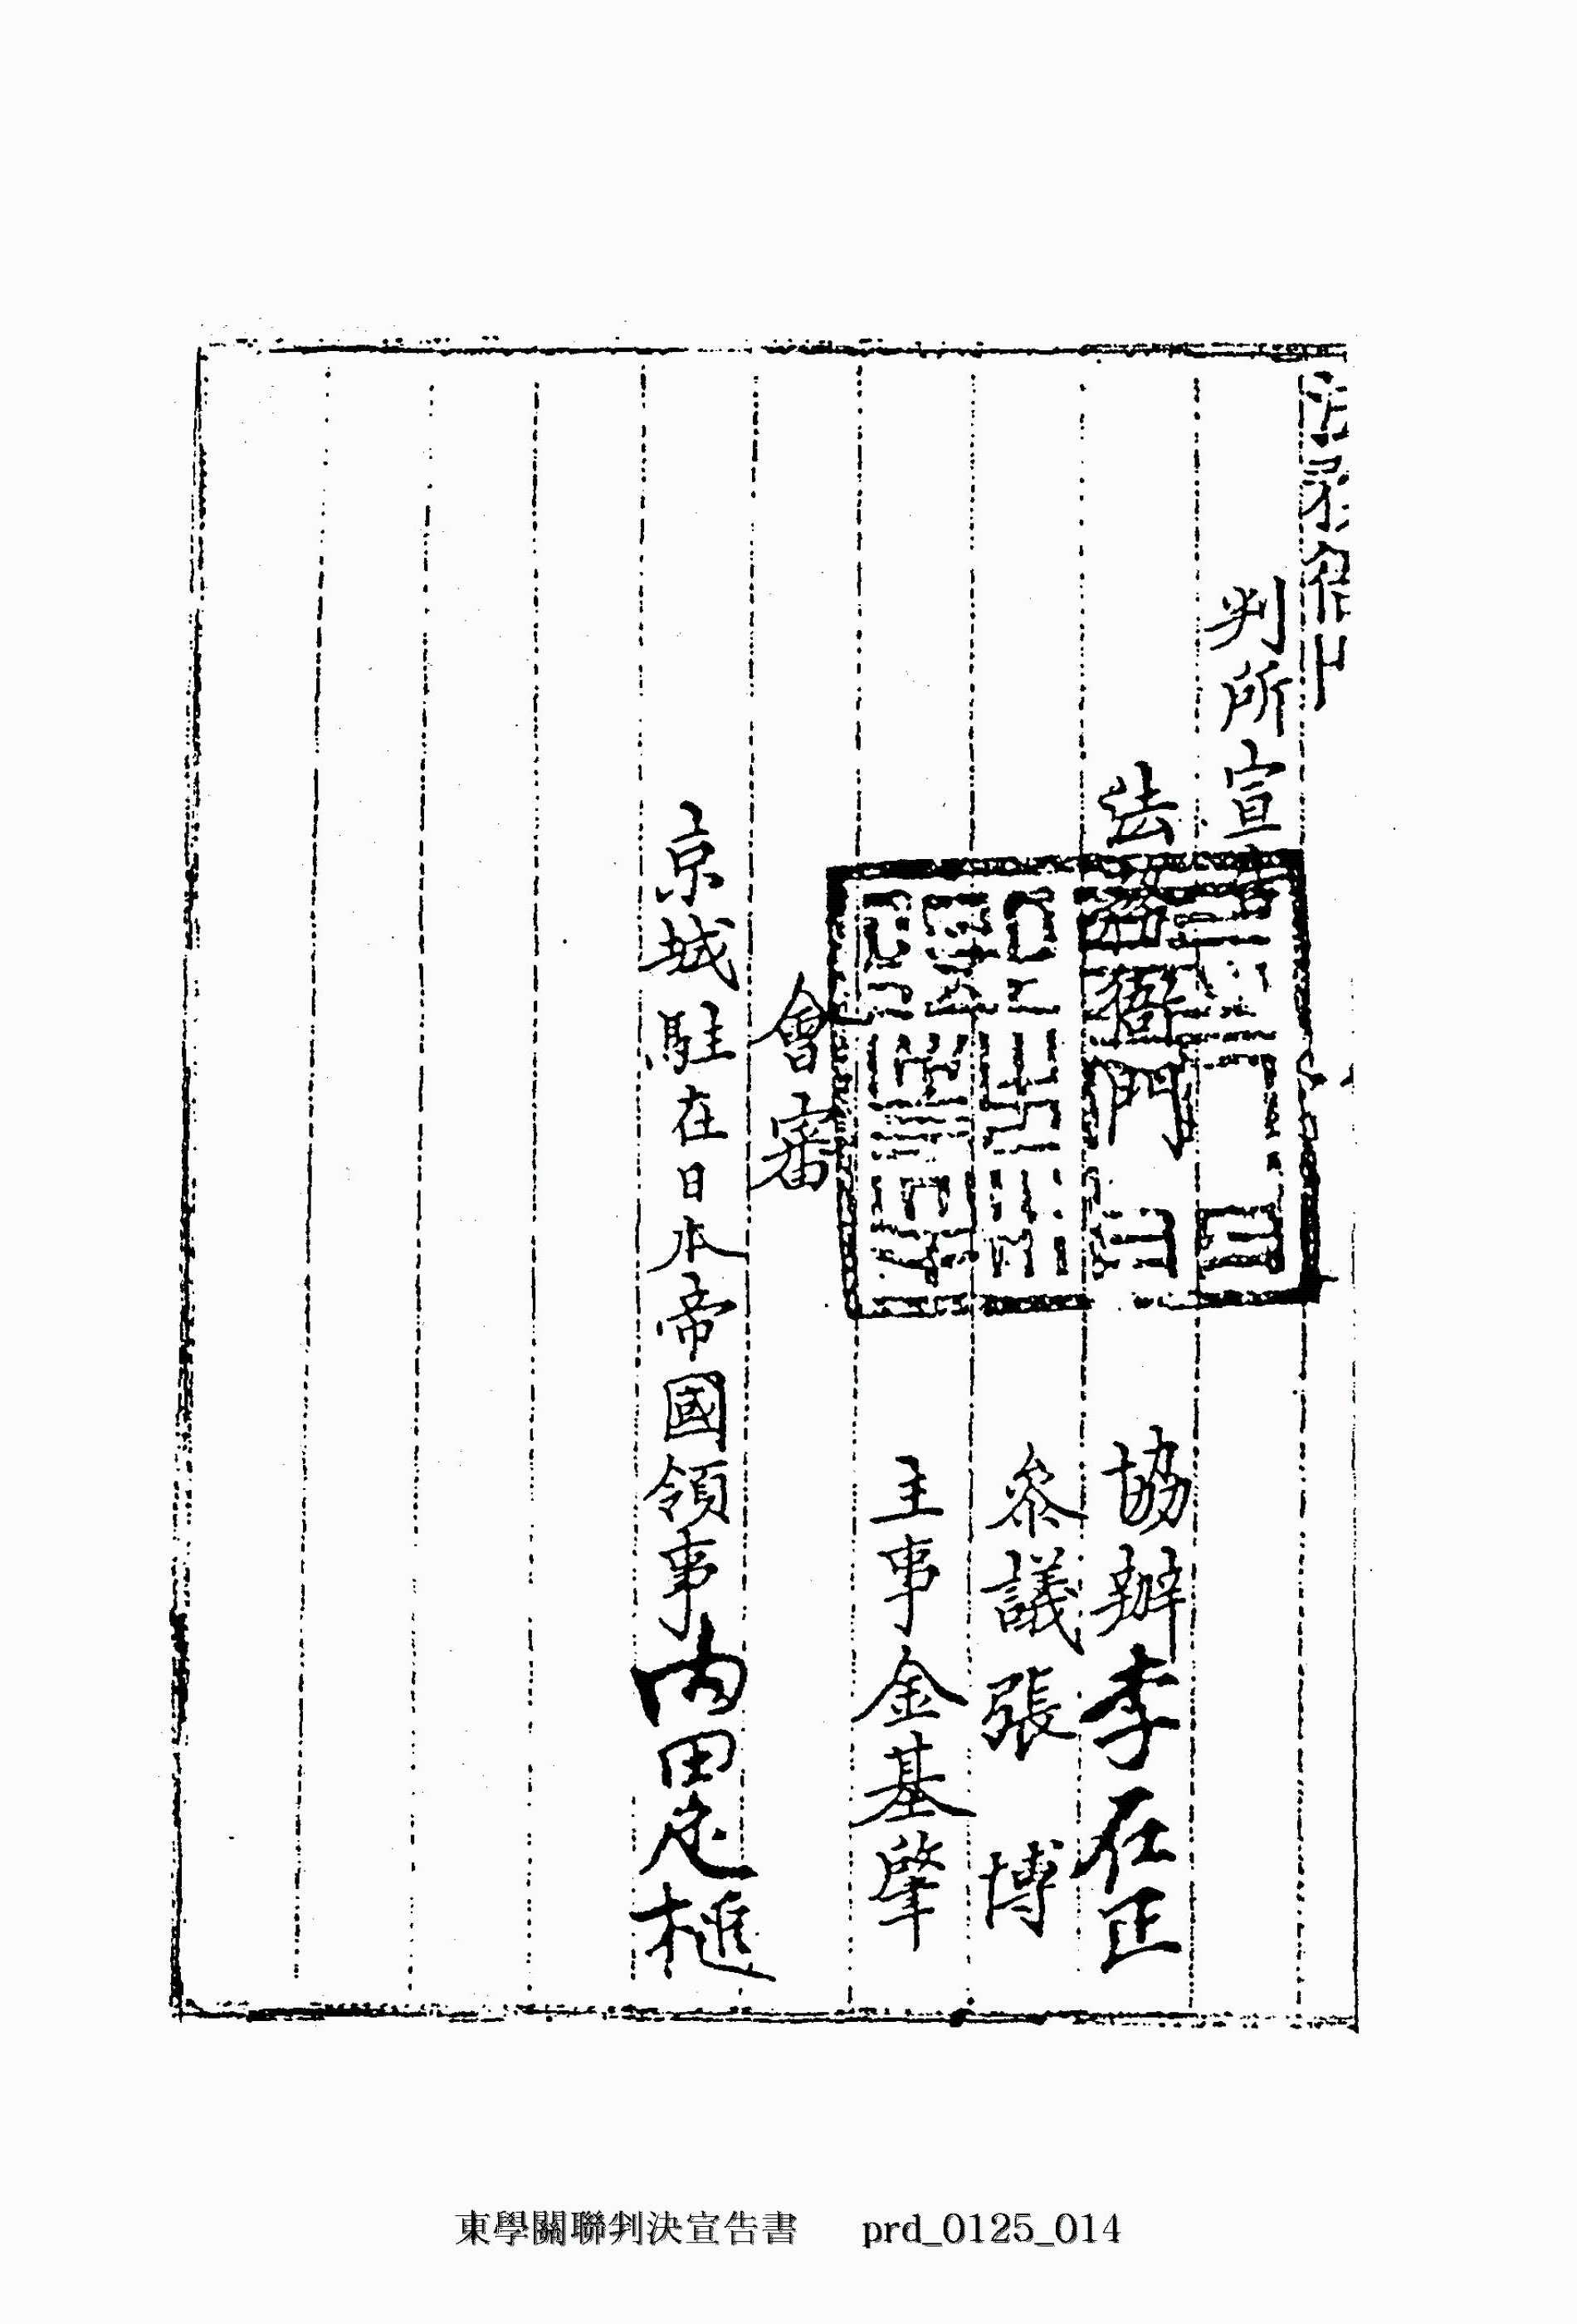 判所宣告
法務衙門
協辦李在正
參議張 博
主事金基肇
會審
京城駐在日本帝國領事內田定槌
東學關聯判決宣告書 prd_0125_014